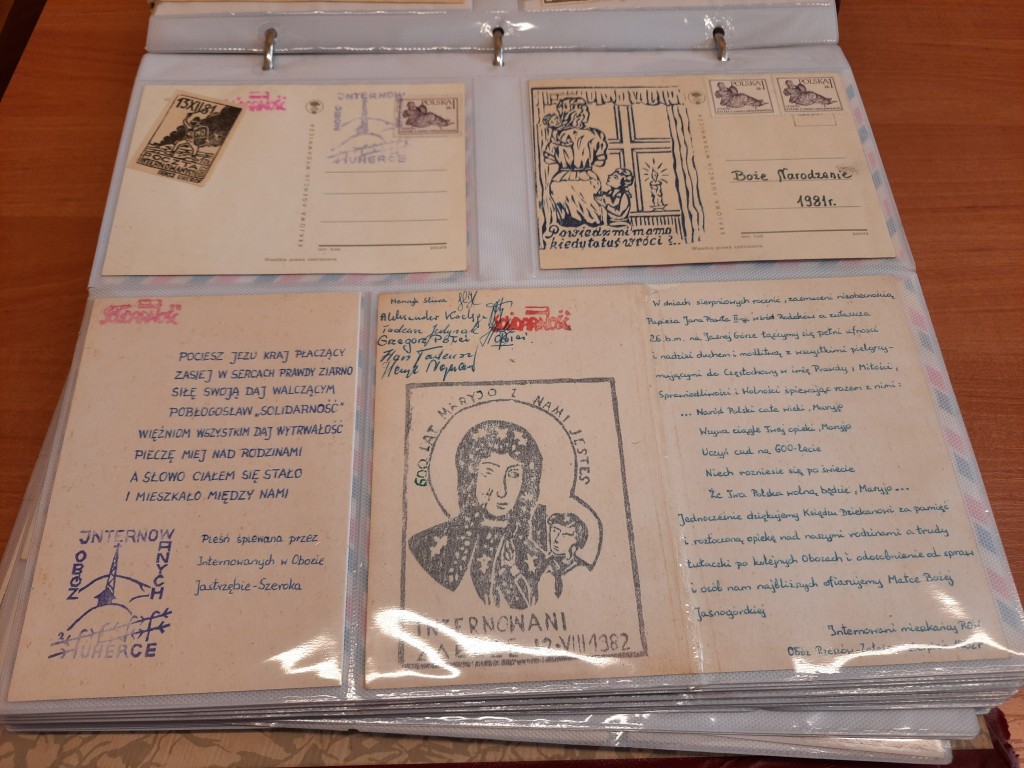 13.XII.81
POCZTA
INTERNOW
OBÓZ
UHERCE
POLSKA
KRAJOWA AGENCJA WYDAWNICZA
POLSKA
POLSKA
KRAJOWA AGENCJA WYDAWNICZA
Boże Narodzenie
1981r.
Powiedz mi mamo
kiedy tatuś wróci?..
Solidarność
POCIESZ JEZU KRAJ PŁACZĄCY
ZASIEJ W SERCACH PRAWDY ZIARNO
SIŁĘ SWOJĄ DAJ WALCZĄCYM
POBŁOGOSŁAW „SOLIDARNOŚĆ"
WIĘŹNIOM WSZYSTKIM DAJ WYTRWAŁOŚĆ
PIECZĘ MIEJ NAD RODZINAMI
A SŁOWO CIAŁEM SIĘ STAŁO
I MIESZKAŁO MIĘDZY NAMI
INTERNOWANYCH
OBÓZ
UHERCE
Pieśń śpiewana przez
Internowanych w Obozie
Jastrzębie-Szeroka
Henryk Sliwa
Aleksander
Tadeusz Jedynak
Grzegorz
Tadeusz
Solidarność
600 LAT MARYJO Z NAMI JESTEŚ
INTERNOWANI
12.VIII.1982
W dniach sierpniowych rocznic, zasmuceni nieobecnością
Papieża Jana Pawła II-go wśród Rodaków a zwłaszcza
26 b.m. na Jasnej Górze łączymy się pełni ufności
i nadziei duchem i modlitwą z wszystkimi pielgrzy-
mującymi do Częstochowy w imię Prawdy, Miłości,
Sprawiedliwości i Wolności śpiewając razem z nimi:
... Naród Polski całe wieki, Maryjo
Wzywa ciągle Twej opieki, Maryjo
Uczyń cud na 600-lecie
Niech rozniesie się po świecie
Że Twa Polska wolną będzie, Maryjo...
Jednocześnie dziękujemy Księdzu Dziekanowi za pamięć
i roztoczoną opiekę nad naszymi rodzinami a trudy
tułaczki po kolejnych Obozach i odosobnienie od spraw
i osób nam najbliższych ofiarujemy Matce Bożej
Jasnogórskiej
Internowani mieszkańcy
Obóz Rzeszów-Załęże